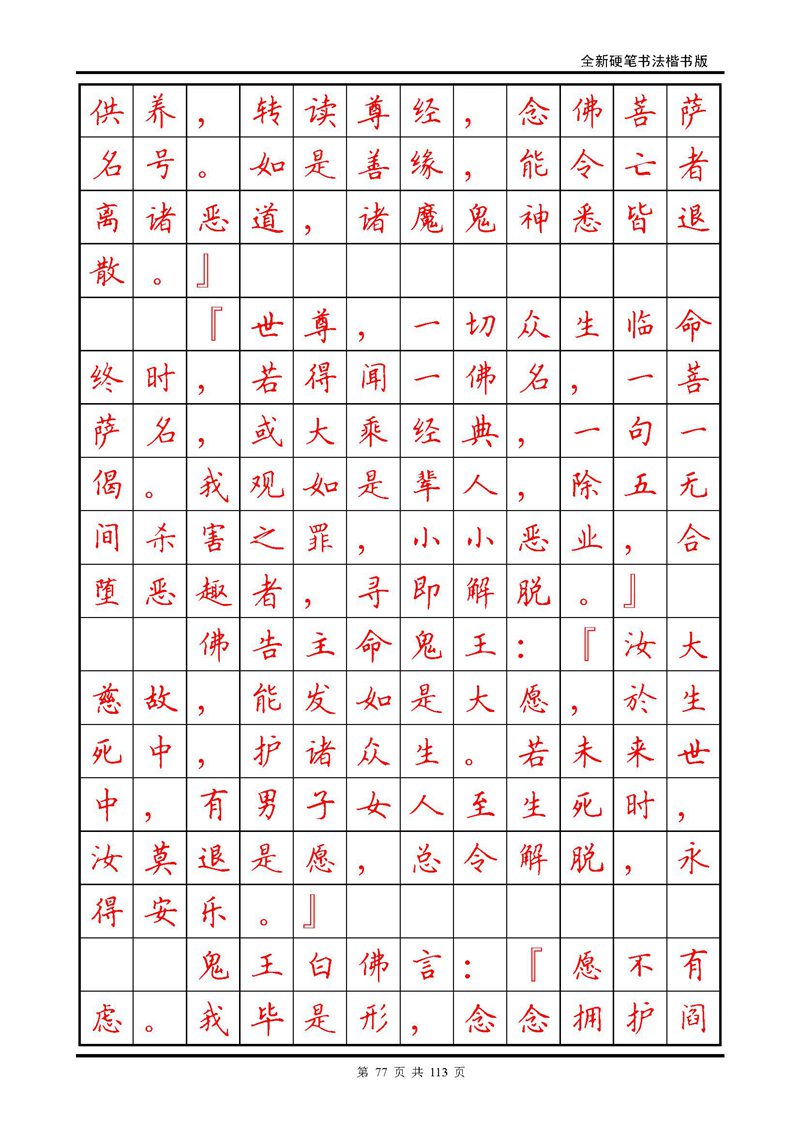 全新硬笔书法楷书版
供养，转读尊经，念佛菩萨
名号。如是善缘，能令亡者
离诸恶道，诸魔鬼神悉皆退
散。』
『世尊，一切众生临命
终时，若得闻一佛名，一菩
萨名，或大乘经典，一句一
偈。我观如是辈人，除五无
间杀害之罪，小小恶业，合
堕恶趣者，寻即解脱。』
佛告主命鬼王：『汝大
慈故，能发如是大愿，於生
死中，护诸众生。若未来世
中，有男子女人至生死时，
汝莫退是愿，总令解脱，永
得安乐。』
鬼王白佛言：『愿不有
虑。我毕是形，念念拥护阎
第 77 页 共 113 页